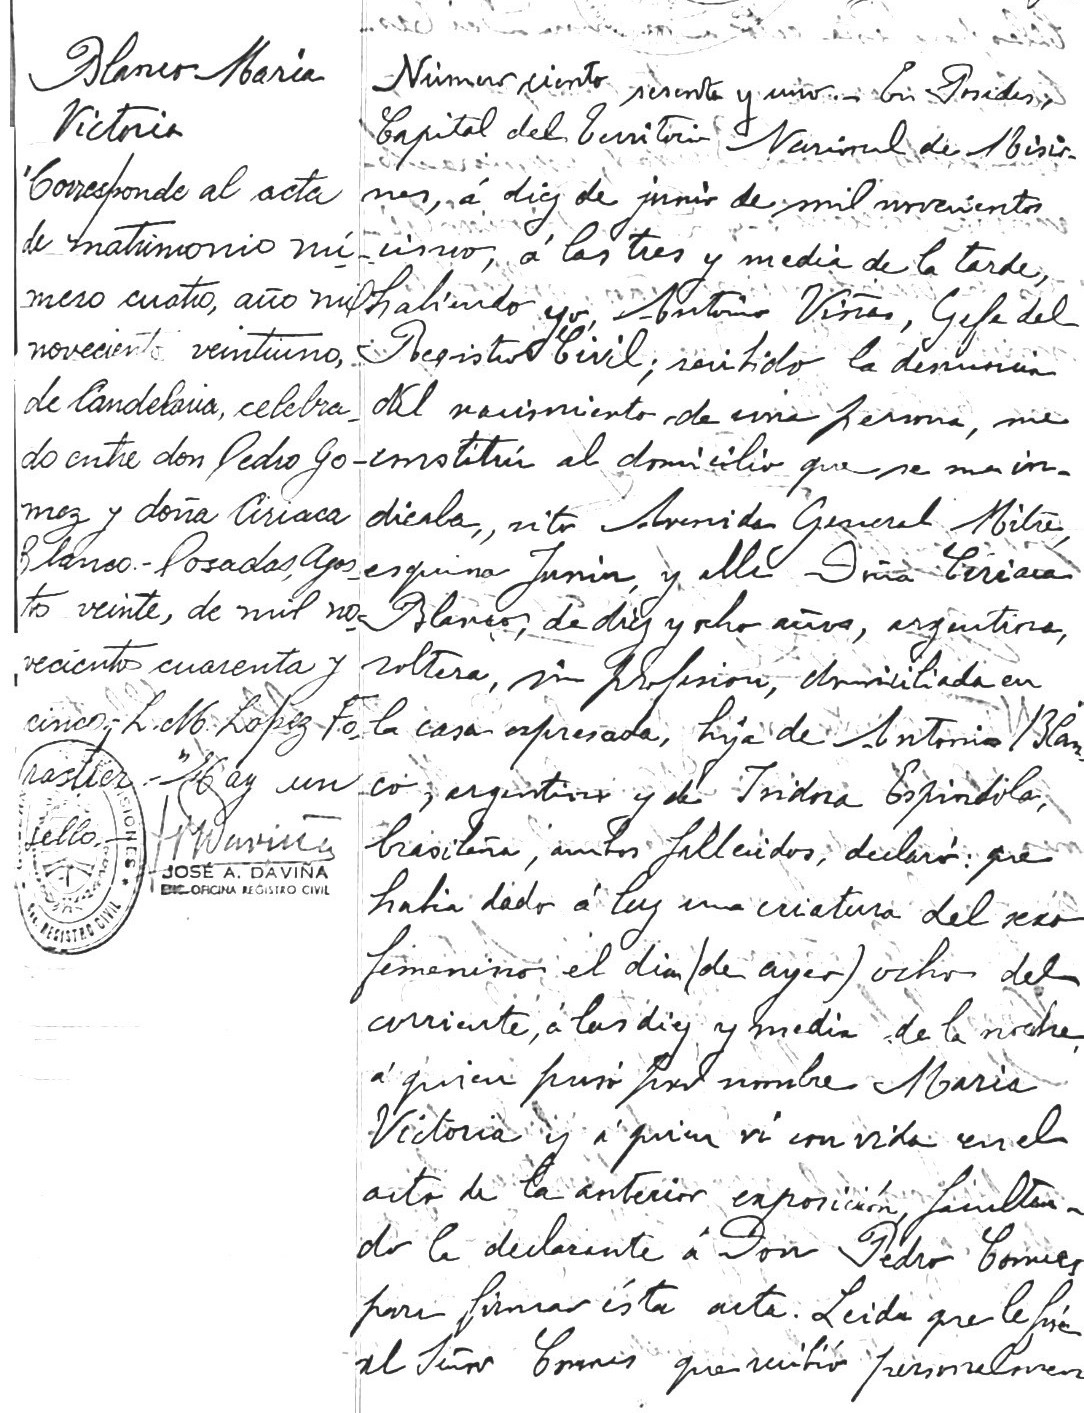 Blanco María
Victoria
"Corresponde al acta
de matrimonio nú-
mero cuatro, año mil
noveciento veintiuno,
de Candelaria, celebra-
do entre don Pedro Go-
mez y doña Ciriaca
Blanco.- Posadas, Agos-
to veinte, de mil no-
veciento cuarenta y
cinco,- L. M. Lopez Fo-
rastier.- "Hay un
sello.-
JOSÉ A. DAVIÑA
OFICINA REGISTRO CIVIL
MISIONES
REGISTRO CIVIL
Número ciento sesenta y uno.- En Posadas,
Capital del Territorio Nacional de Misio-
nes, á diez de junio de mil novecientos
cinco, á las tres y media de la tarde,
habiendo yo, Antonio Viñas, Gefe del
Registro Civil; recibido la denuncia
del nacimiento de una persona, me
constituí al domicilio que se me in-
dicaba, sito Avenida General Mitre,
esquina Junin, y allí Doña Ciriaca
Blanco, de diez y ocho años, argentina,
soltera, sin profesion, domiciliada en
la casa expresada, hija de Antonio Blan-
co, argentino y de Isidora Espindola,
brasileña, ambos fallecidos, declaró: que
habia dado á luz una criatura del sexo
femenino el dia (de ayer) ocho del
corriente, á las diez y media de la noche,
á quien puso por nombre María
Victoria y á quien ví con vida en el
acto de la anterior exposición, facultan-
do la declarante á Don Pedro Comes
para firmar ésta acta. Leida que le fué
al Señor Comes que recibió personalmen